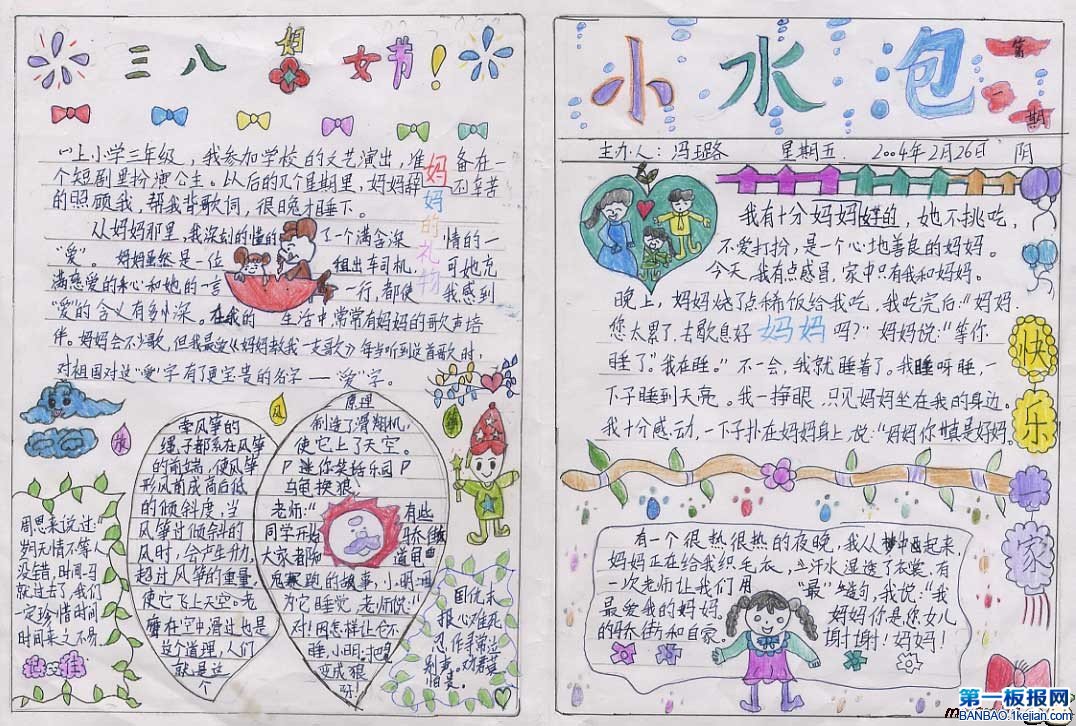 三八妇女节！
上小学三年级，我参加学校的文艺演出，准备在一
个短剧里扮演公主。以后的几个星期里，妈妈辞不辛苦
的照顾我，帮我背歌词，很晚才睡下。
妈妈的礼物
从妈妈那里，我深刻的懂的了一个满含深情的一
"爱"。妈妈虽然是一位租出车司机，可她充
满恋爱的和心和她的一言一行，都使我感到
"爱"的含义有多么深。在我的生活中，常常有妈妈的歌声培
伴。妈妈会不少歌，但我最爱《妈妈教我一支歌》每当听到这首歌时，
对祖国对这"爱"字有了更宝贵的名字——"爱"字。
风
牵风筝的
绳子都系在风筝
的前端，使风筝
形风前成高后低
的倾斜度，当
风筝过倾斜的
风时，会产生升力，
超过风筝的重量，
使它飞上天空。老
鹰在空中滑过也是
这个道理，人们
就是这
个
原理
制造了滑翔机，
使它上了天空。
P 迷你笑话乐园 P
乌龟换狼
老师："有些
同学开始骄傲
大家都知道龟
兔赛跑的故事，小明
为它睡觉，老师说："
对！因怎样让它不
睡，小明："把它
变成狼
呀！
周恩来说过："
时间无情不等人
没错，时间一马
就过去了，我们
一定珍惜时间
时间来之不易。
国仇未
报心难死
忍作寻常泣
别声。劝君莫
怕贵。
小水泡
第一期
主办人：冯璐 星期五 2004年2月26日 阴
我有十分妈妈好的，她不挑吃，
不爱打扮，是一个心地善良的妈妈。
今天，我有点感冒，家中只有我和妈妈。
晚上，妈妈烧了点稀饭给我吃，我吃完后："妈妈
您太累了，去歇息好妈妈吗？"妈妈说："等你
睡了"。我在睡。"不一会，我就睡着了。我睡呀睡，一
下子睡到天亮。我一挣眼，只见妈妈坐在我的身边。
我十分感动，一下子扑在妈妈身上，说："妈妈你真是好妈妈。
快乐一家
有一个很热很热的夜晚，我从梦中起来，
妈妈正在给我织毛衣，汗水湿透了衣裳。有
一次老师让我们用"最"造句，我说："我
最爱我的妈妈，妈妈你是您女儿
的骄傲和自豪。谢谢！妈妈！
第一板报网
BANBAO.1kejian.com